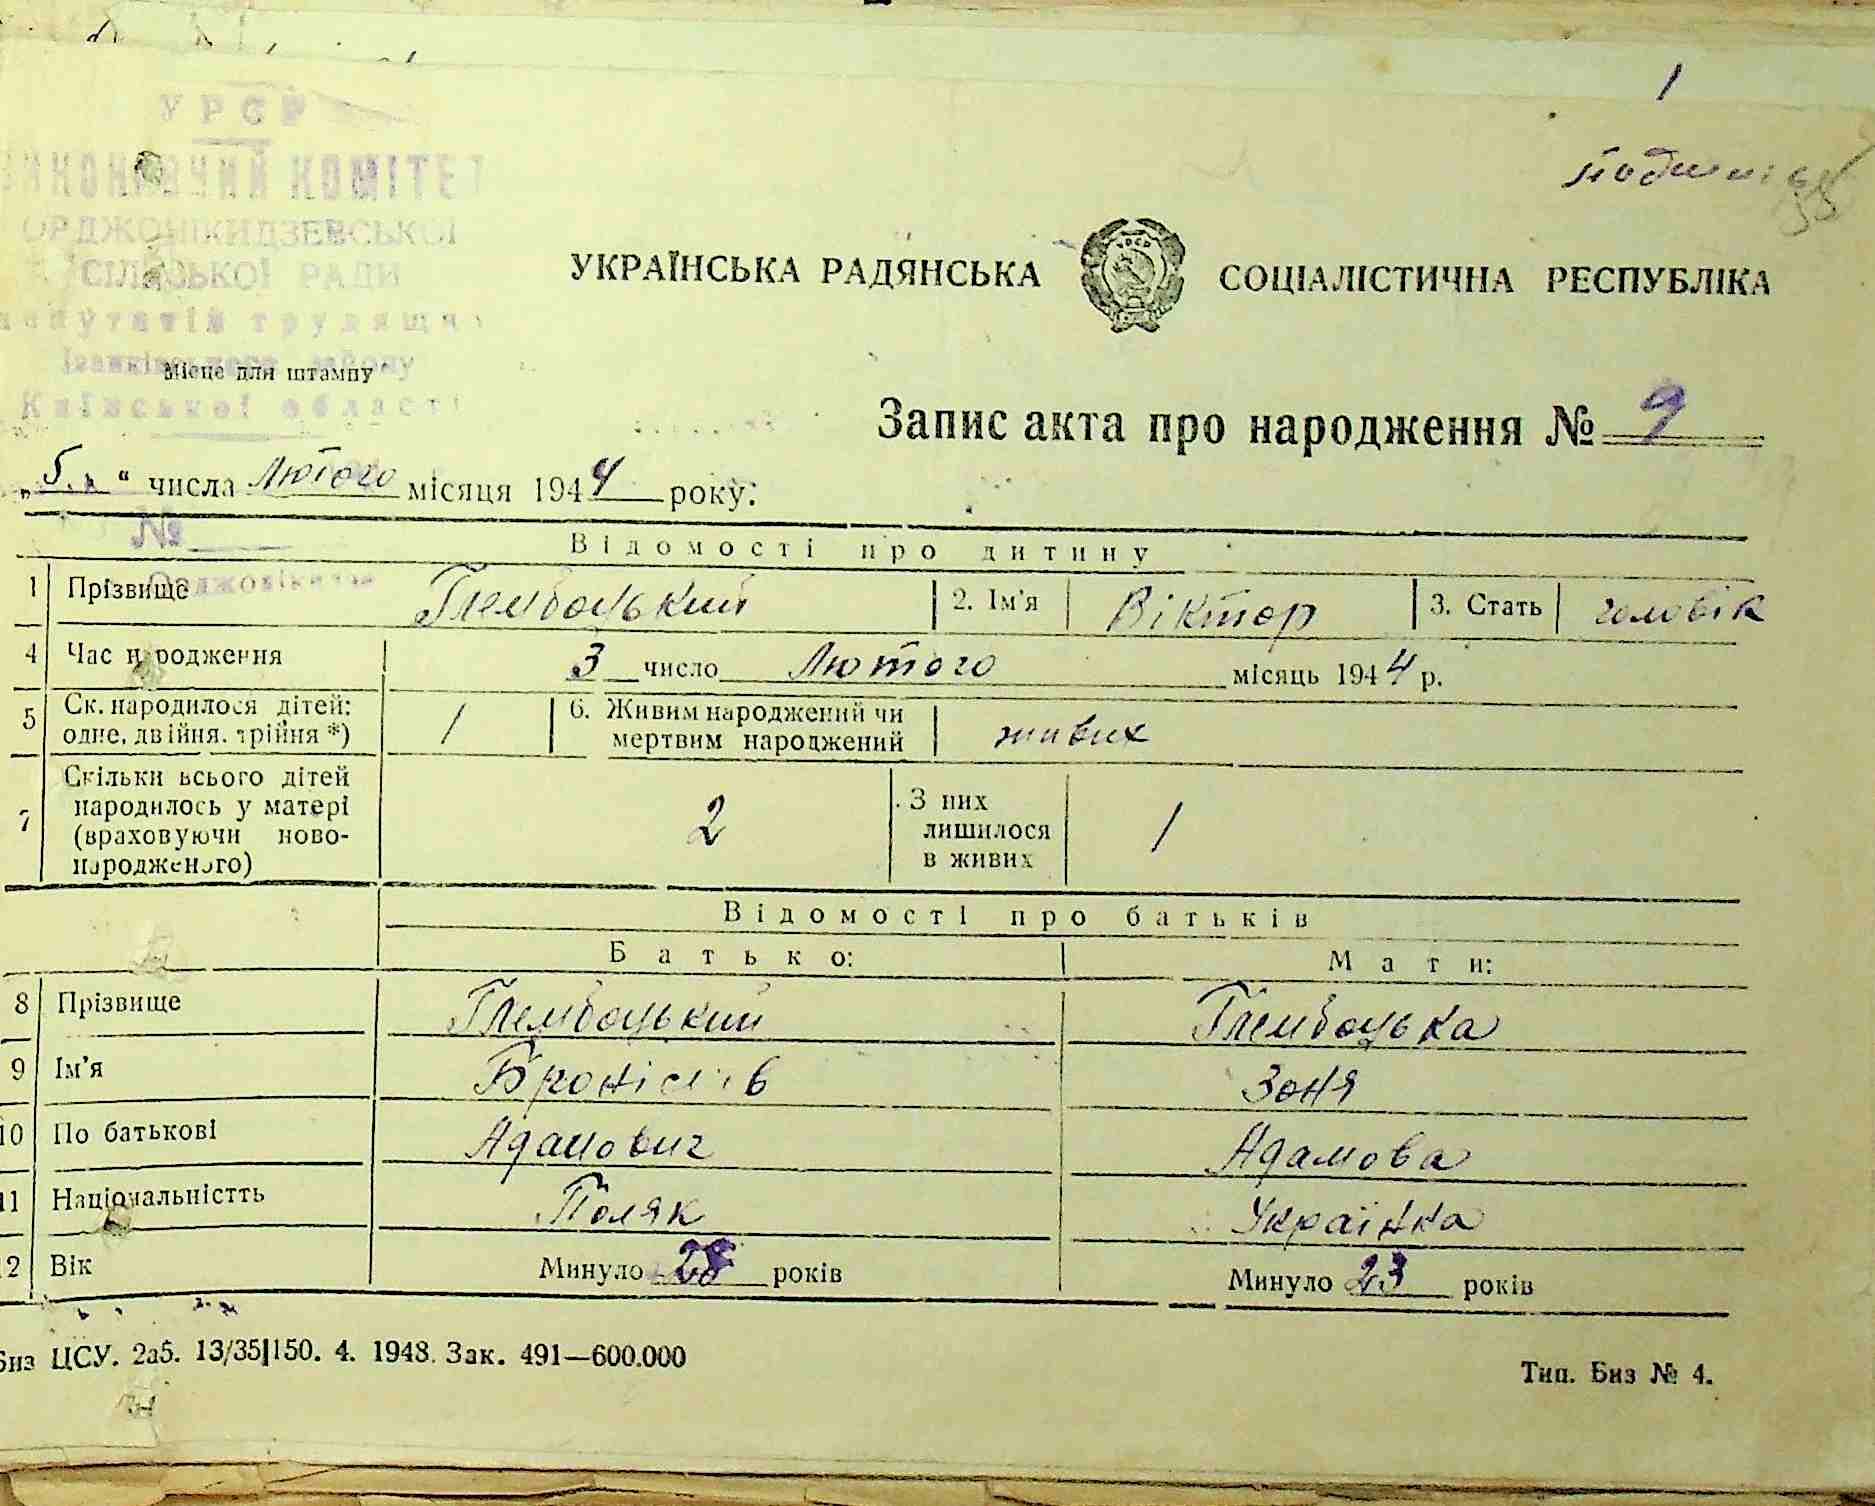 1
УРСР
ВИКОНАВЧИЙ КОМІТЕТ
ОРДЖОНІКИДЗЕВСЬКОЇ
СІЛЬСЬКОЇ РАДИ
депутатів трудящих
Іванківського району
Київської області
Місце для штампу
УКРАЇНСЬКА РАДЯНСЬКА СОЦІАЛІСТИЧНА РЕСПУБЛІКА
Запис акта про народження № 9
„5.“ числа Лютого місяця 1944 року.
№
Відомості про дитину
1 Прізвище Глембоцький 2. Ім'я Віктор 3. Стать чоловік
4 Час народження 3 число Лютого місяць 1944 р.
5 Ск. народилося дітей: одне, двійня, трійня *) 1 6. Живим народжений чи мертвим народжений живих
7 Скільки всього дітей народилось у матері (враховуючи ново-народженого) 2 З них лишилося в живих 1
Відомості про батьків
Батько: Мати:
8 Прізвище Глембоцький Глембоцька
9 Ім'я Броніслав Зоня
10 По батькові Адамович Адамова
11 Національністть Поляк Українка
12 Вік Минуло 28 років Минуло 23 років
Биз ЦСУ. 2аб. 13/35|150. 4. 1948. Зак. 491—600.000
Тип. Биз № 4.